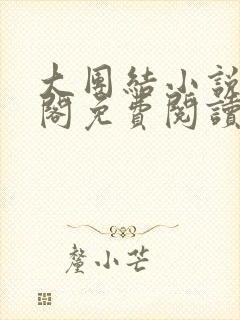 大團結小說
閣免費閱讀
釐小芒